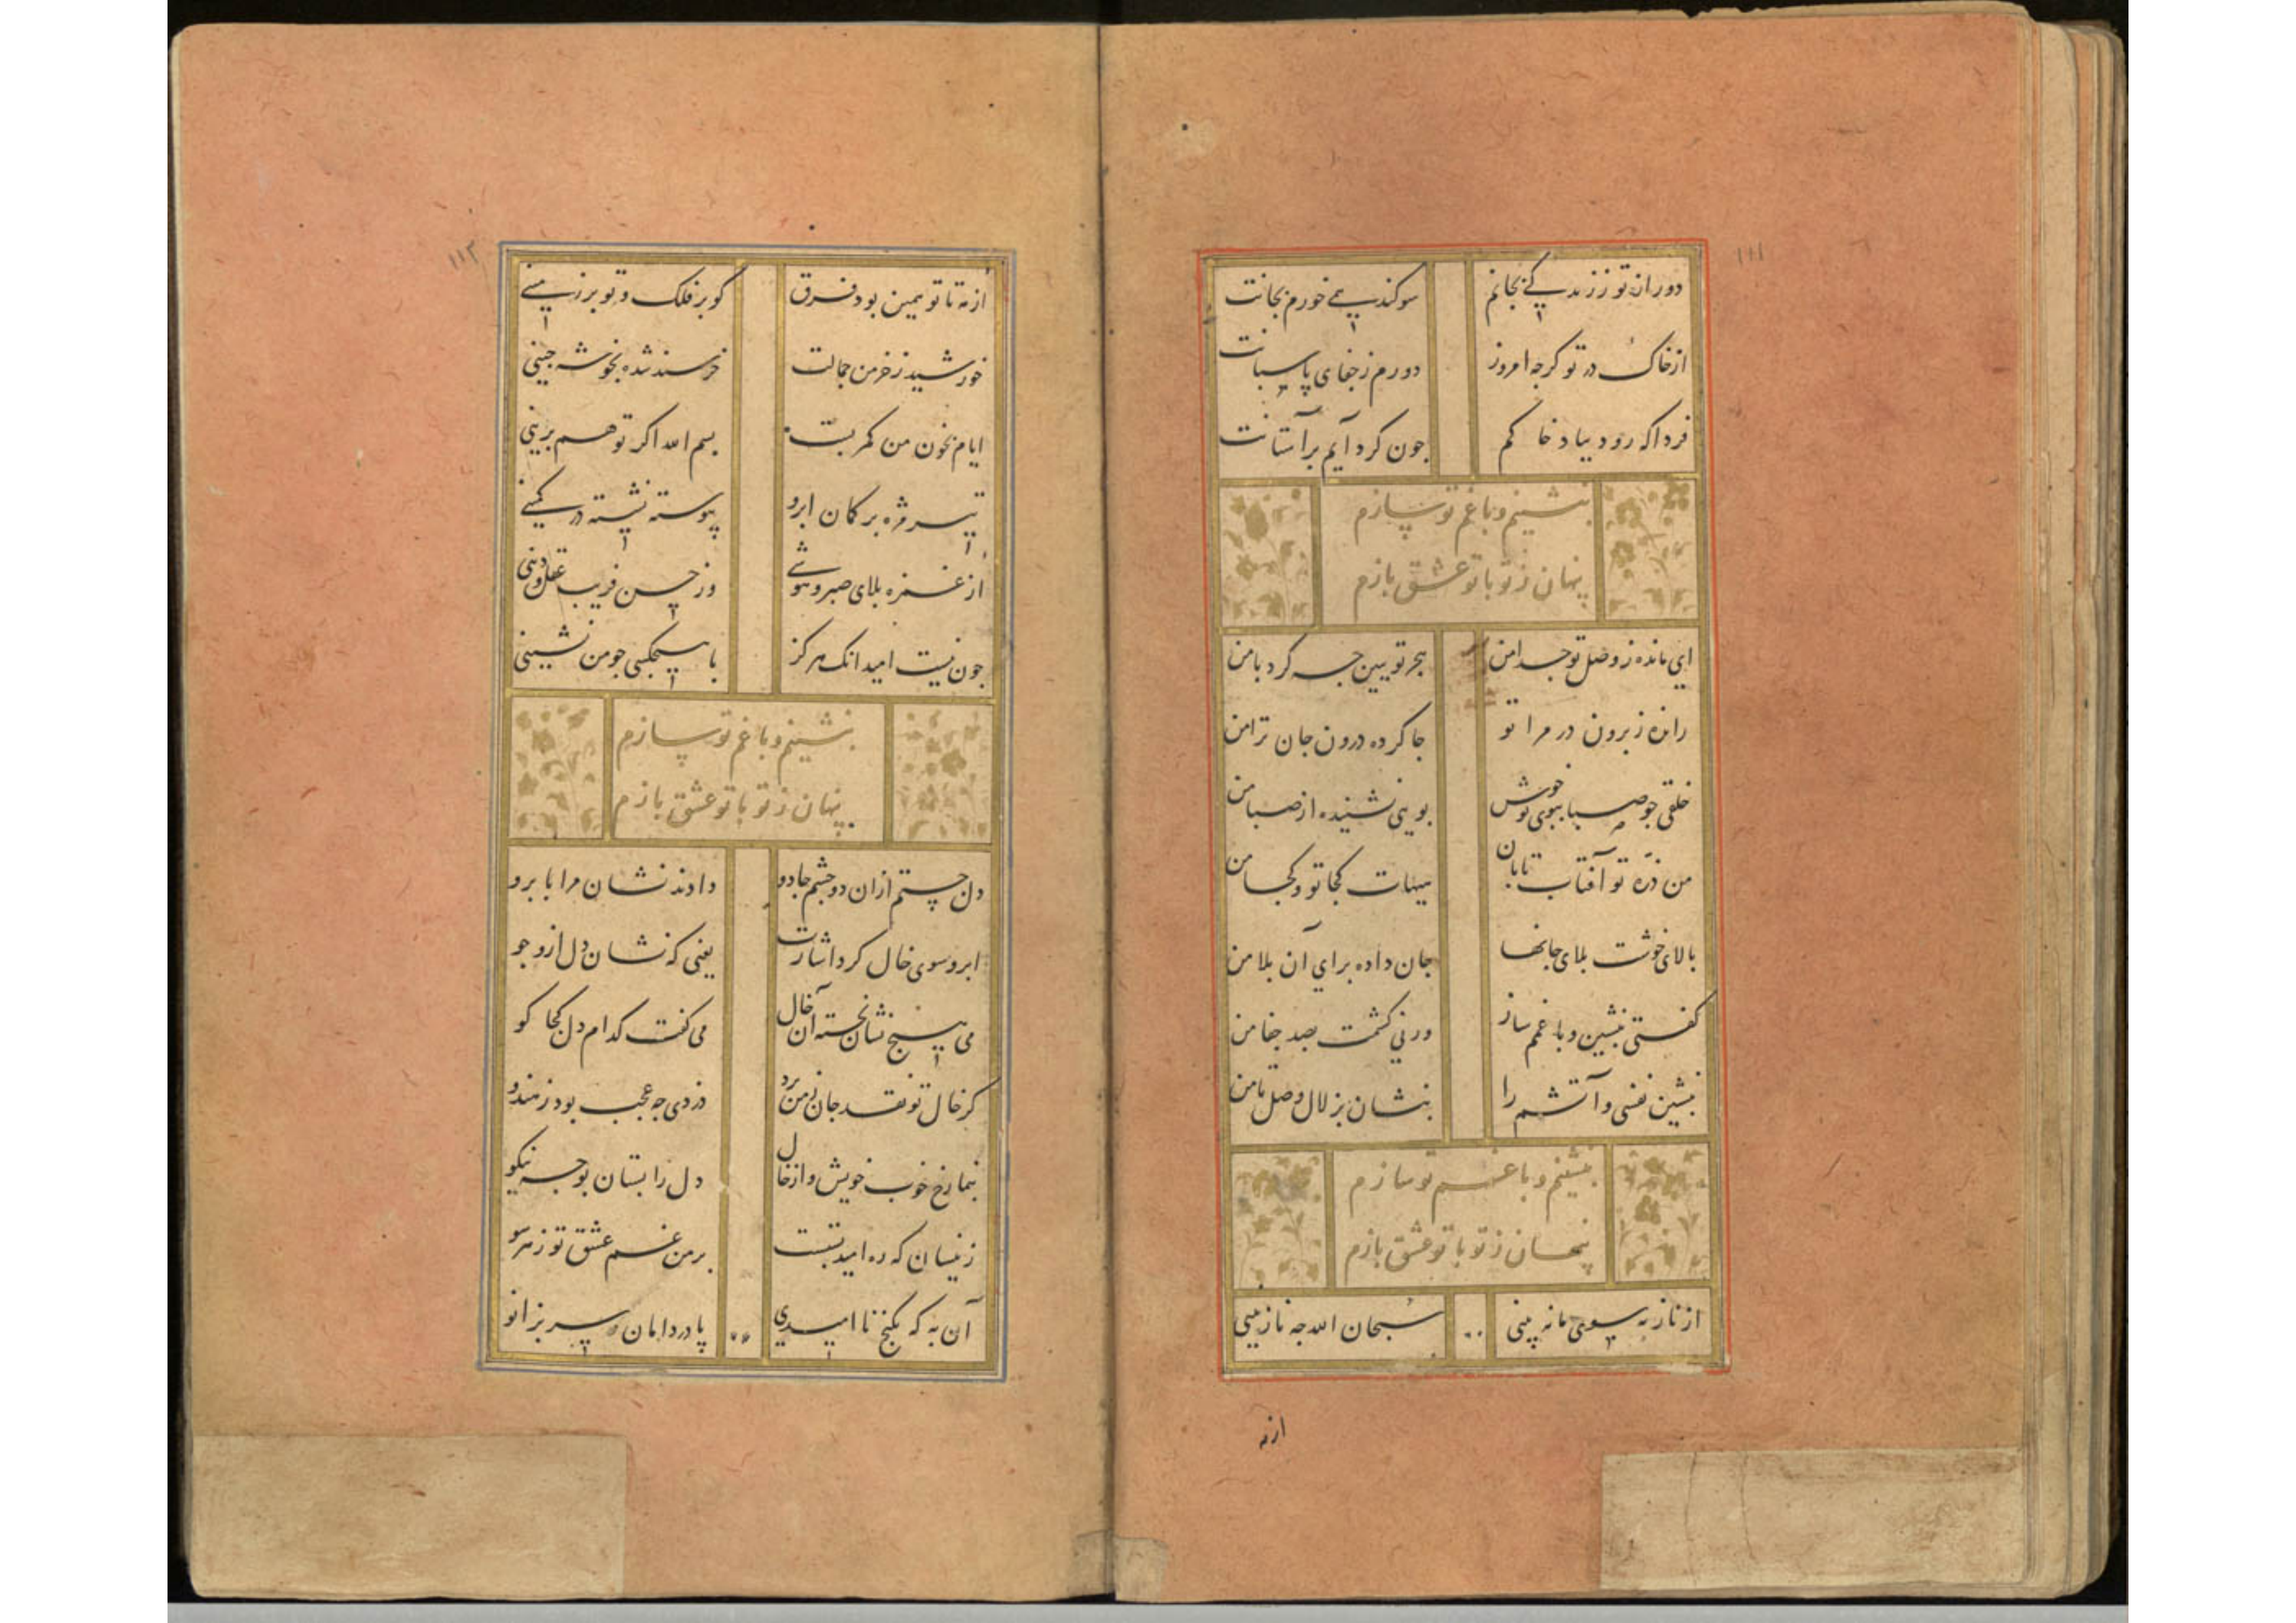 ۱۱۱
دور از تو ز زندگی بجانم سوکند همی خورم بجانت
از خاک در تو کرچه امروز دورم ز جفای پاسبانت
فردا که رود بباد خاکم چون کرد آیم بر آستانت
بنشینم و با غم تو سازم
پنهان ز تو با تو عشق بازم
ای مانده ز وصل تو جدا من هجر تو ببین چه کرد با من
رانده ز برون در مرا تو جا کرده درون جان ترا من
خلقی چو صبا ببوی تو خوش بویی نشنیده از صبا من
من ذره تو آفتاب تابان هیهات کجا تو و کجا من
بالای خوشت بلای جانها جان داده برای آن بلا من
کفتی بنشین و با غمم ساز ورنی کشمت بصد جفا من
بنشین نفسی و آتشم را بنشان بزلال وصل تا من
بنشینم و با غم تو سازم
پنهان ز تو با تو عشق بازم
از ناز به سوی ما نه بینی سبحان الله چه نازنینی
از مه
۱۱۲
از مه تا تو همین بود فرق کو بر فلک و تو بر زمینی
خورشید ز خرمن جمالت خرسند شده بخوشه چینی
ایام بخون من کمر بست بسم الله اکر تو هم برینی
تیر مژه بر کمان ابرو پیوسته نشسته در کمینی
از غمزه بلای صبر و هوشی وز حسن فریب عقل و دینی
چون نیست امید آنک هرکز با هیچکسی چو من نشینی
بنشینم و با غم تو سازم
پنهان ز تو با تو عشق بازم
دل جستم ازان دو چشم جادو دادند نشان مرا بابرو
ابرو سوی خال کرد اشارت یعنی که نشان دل ازو جو
می هیچ نشان نجسته آن خال می کفت کدام دل کجا کو
کر خال تو نقد جان ز من برد دزدی چه عجب بود ز هندو
بنما رخ خوب خویش و از خال دل را بستان بوجه نیکو
زینسان که ره امید بستست بر من غم عشق تو ز هر سو
آن به که بکنج ناامیدی پا در دامان و سر بزانو